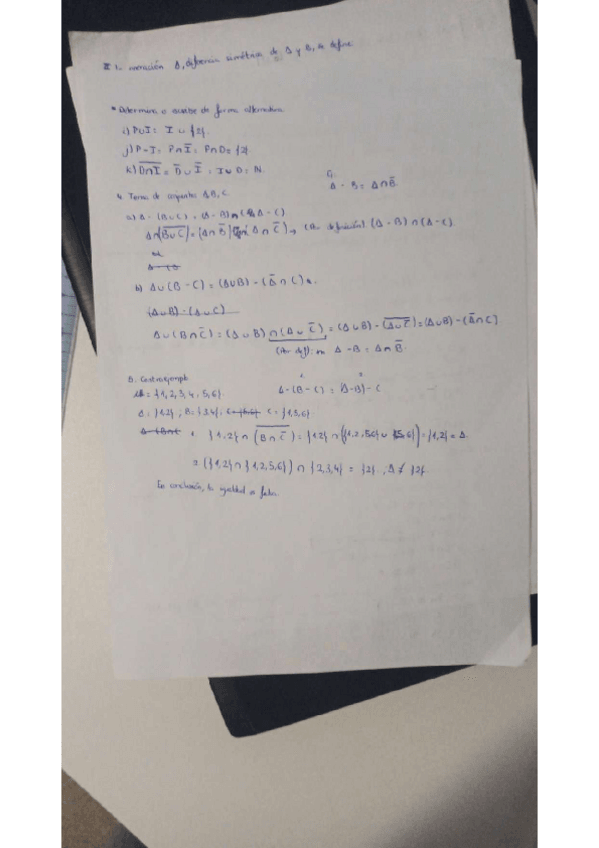 II 1. operación Δ, diferencia simétrica de A y B, se define
* Determina o escribe de forma alternativa
i) P∪I = I ∪ {2}.
j) P - I = P∩Ī = P∩D = {2}
k) \overline{D∩I} = D̄ ∪ Ī = I∪D = N.
A - B = A∩B̄.
4. conjuntos A, B, C.
a) A - (B∪C) = (A - B) ∩ (A - C)
A∩(\overline{B∪C}) = (A∩B̄) ∩ (A∩C̄) → (Por definición) (A - B) ∩ (A - C).
b) A∪(B - C) = (A∪B) - (Ā∩C)
(A∪B) - (A∪C)
A∪(B∩C̄) = (A∪B) ∩ (A∪C̄) = (A∪B) - \overline{(A∪C̄)} = (A∪B) - (Ā∩C)
(Por def): A - B = A∩B̄.
5. Contraejemplo
U = {1, 2, 3, 4, 5, 6}. A - (B - C) = (A - B) - C
A = {1,2}; B = {3,4}; C = {1,5,6}.
1. {1,2} ∩ (\overline{B∩C̄}) = {1,2} ∩ ({1,2,5,6} ∪ {5,6}) = {1,2} = A
2 ({1,2} ∩ {1,2,5,6}) ∩ {2,3,4} = {2}, A ≠ {2}.
En conclusión, la igualdad es falsa.